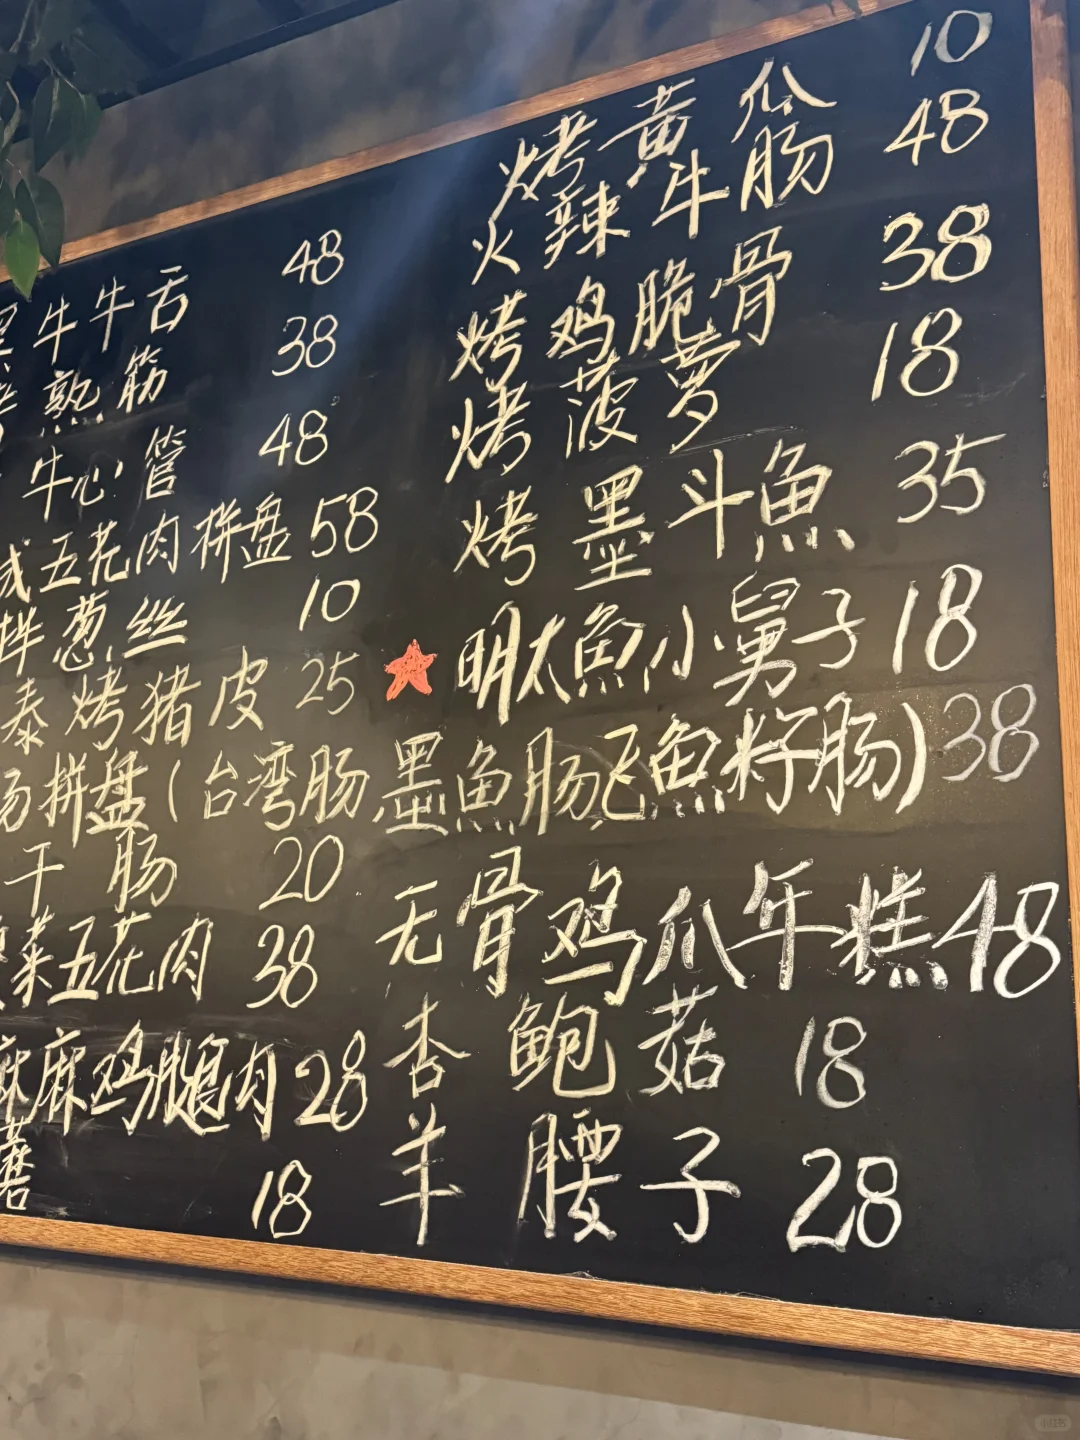 牛牛舌 48
熟筋 38
牛心管 48
五花肉拼盘 58
拌葱丝 10
泰烤猪皮 25
肠拼盘(台湾肠,墨鱼肠,飞鱼籽肠) 38
干肠 20
菜五花肉 38
麻鸡腿肉 28
蘑 18
烤黄瓜 10
火辣牛肠 48
烤鸡脆骨 38
烤菠萝 18
烤墨斗魚 35
明太魚小舅子 18
无骨鸡爪年糕 48
杏鲍菇 18
羊腰子 28
小红书